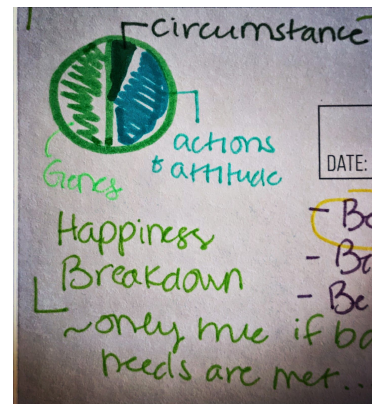 circumstance
actions
& attitude
Genes
DATE:
Happiness
Breakdown
- Be
~only true if ba
needs are met..